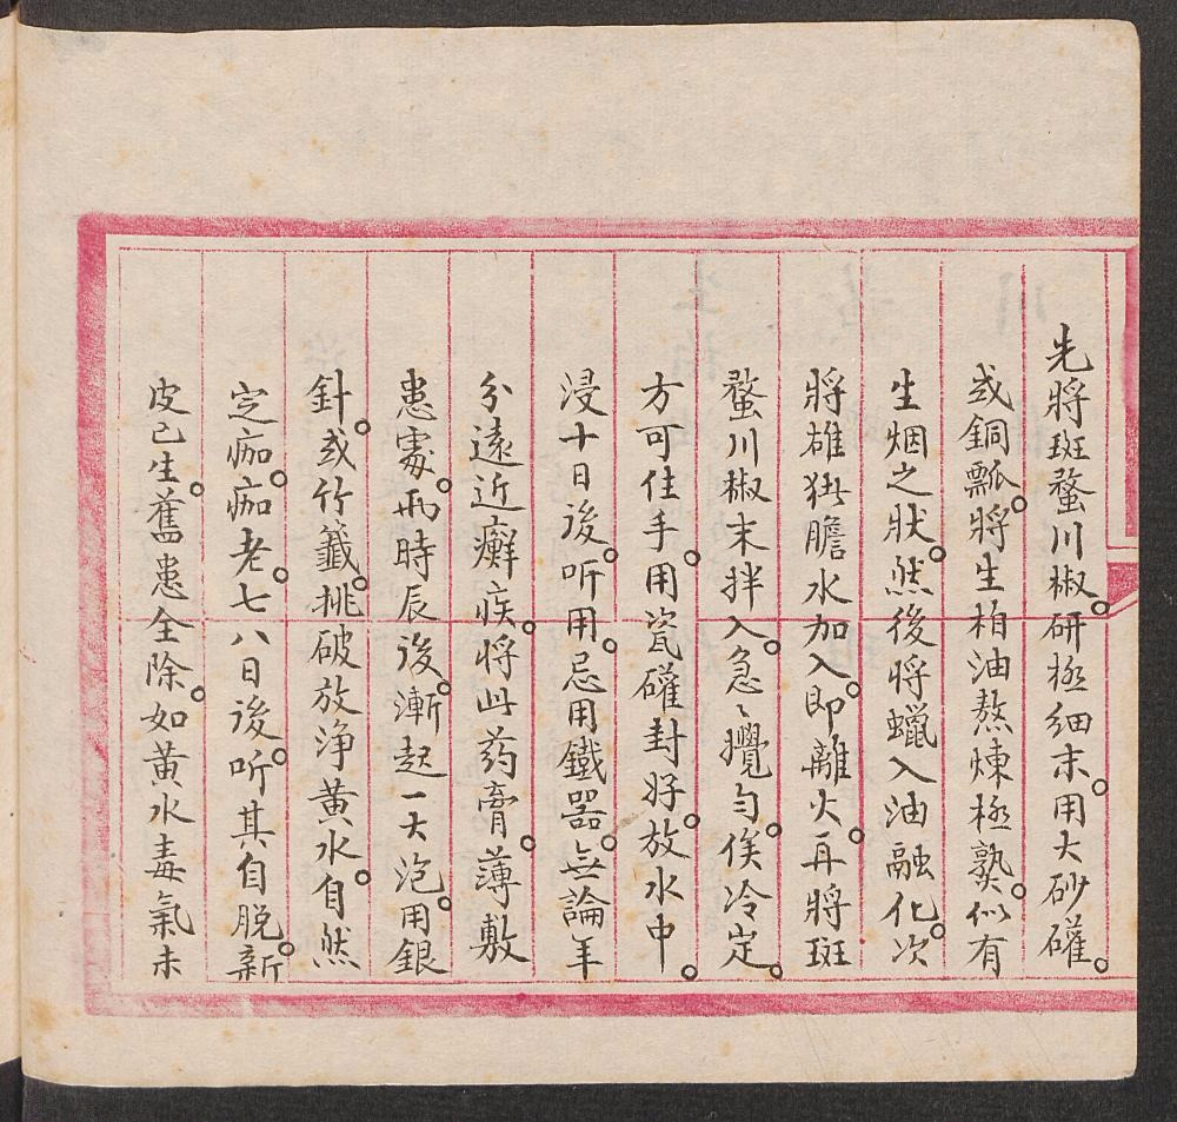 先將斑蝥川椒。研極細末。用大砂礶。
或銅瓢。將生柏油熬煉極熟。似有
生烟之狀。然後將蠟入油融化。次
將雄猪膽水加入。即離火。再將斑
蝥川椒末拌入。急〻攪勻。俟冷定。
方可住手。用瓷礶封好。放水中。
浸十日後。听用。忌用鐵器。無論年
分遠近癬疾。將此药膏。薄敷
患處。兩時辰後。漸起一大泡。用銀
針。或竹籤。挑破放淨黃水。自然
定痂。痂老。七八日後。听其自脱。新
皮已生。舊患全除。如黃水毒氣未